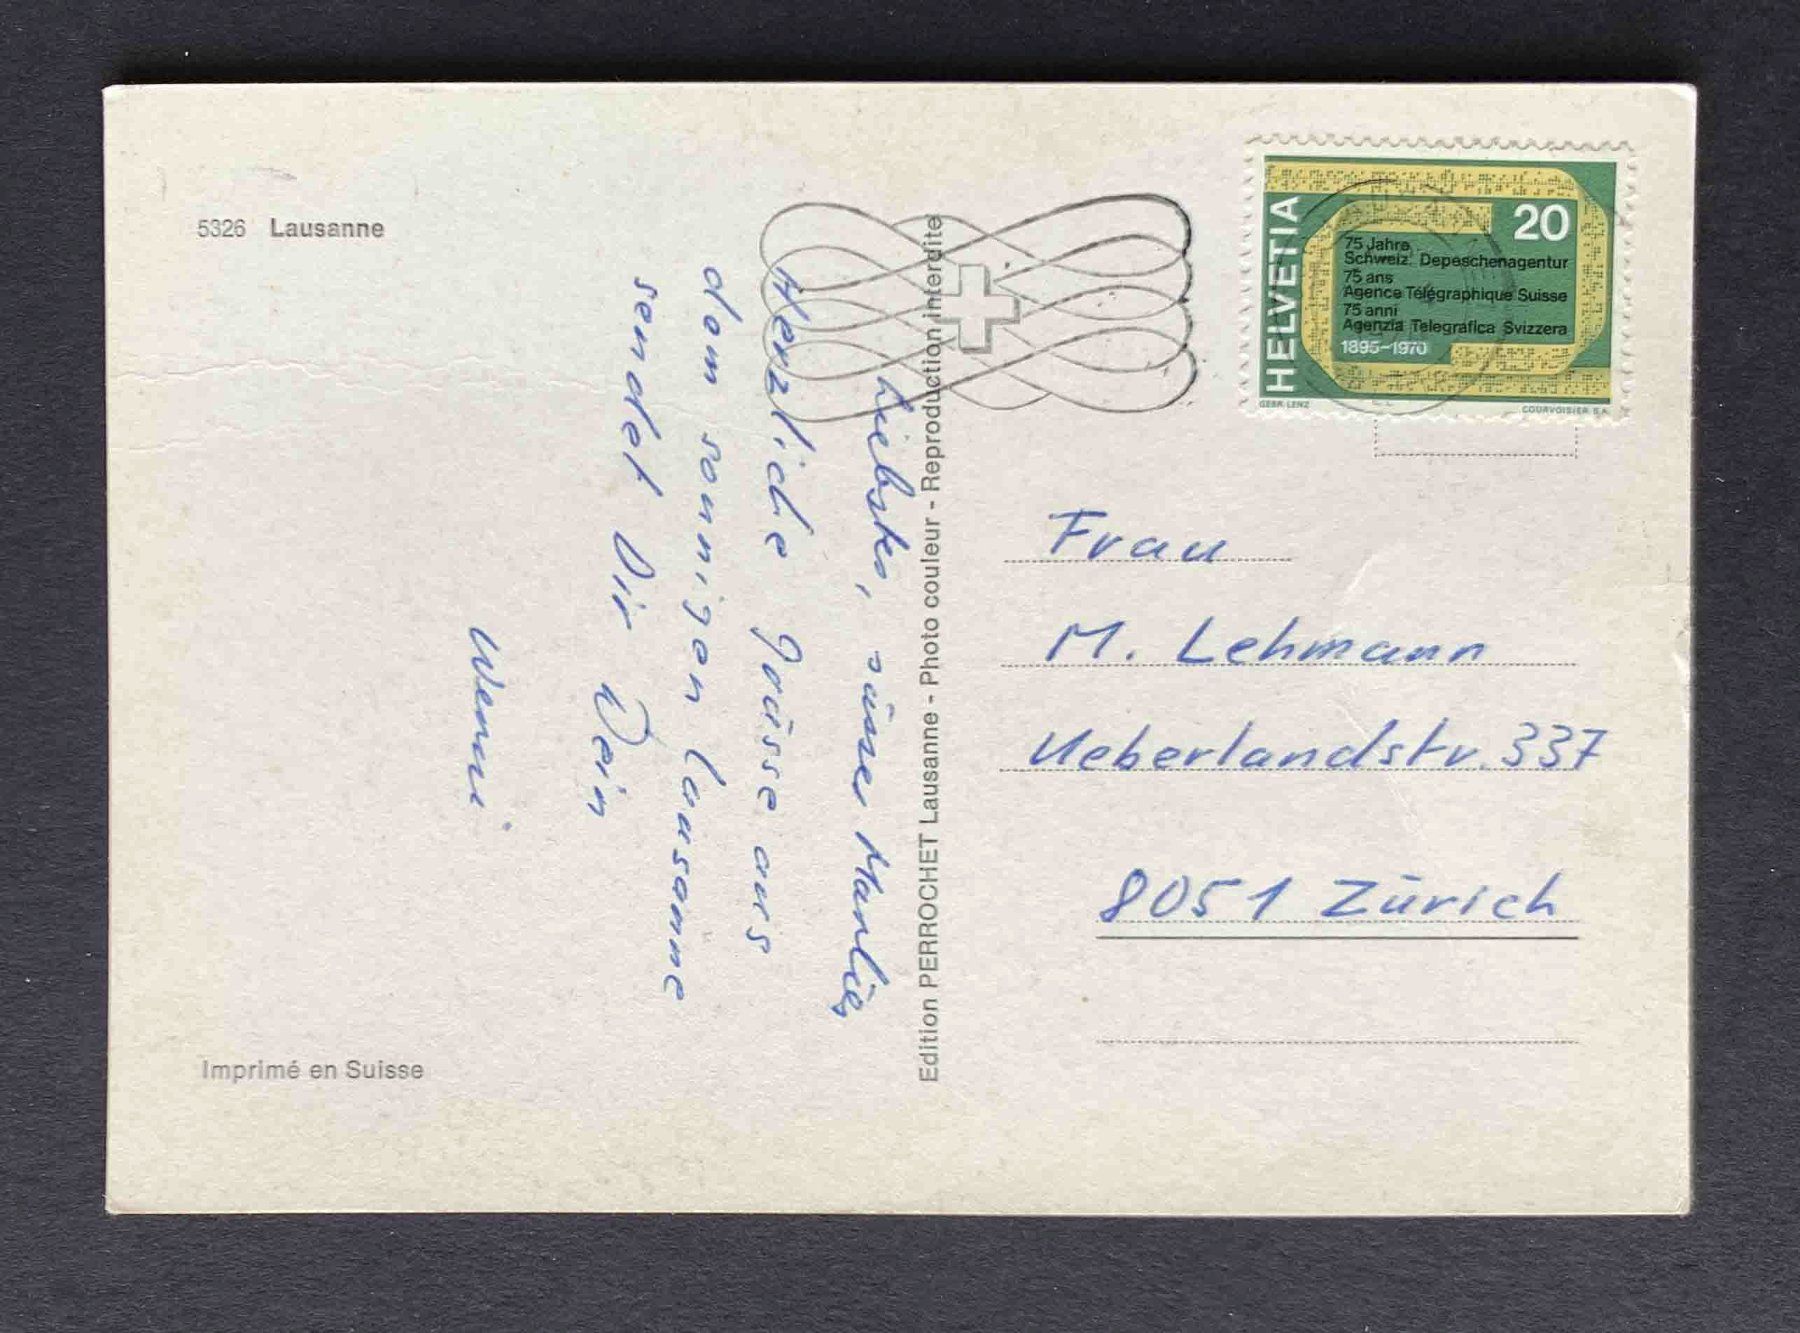 5326 Lausanne
Liebstes, süsses Marlies
Herzliche Grüsse aus
dem sonnigen Lausanne
sendet Dir Dein
Werni
Imprimé en Suisse
Edition PERROCHET Lausanne - Photo couleur - Reproduction interdite
HELVETIA
20
75 Jahre
Schweiz. Depeschenagentur
75 ans
Agence Télégraphique Suisse
75 anni
Agenzia Telegrafica Svizzera
1895–1970
GEBR. LENZ
COURVOISIER S.A.
Frau
M. Lehmann
Ueberlandstr. 337
8051 Zürich